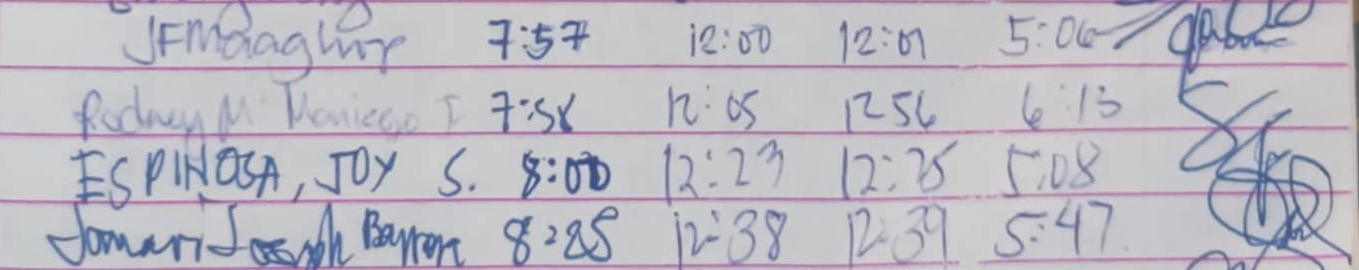 JFMaaghop 7:57 12:00 12:01 5:06
Rodney M. Maniego I 7:58 12:05 12 56 6:13
ESPINOSA, JOY S. 8:00 12:23 12:25 5:08
Jomari Joseph Barron 8:25 12:38 12:39 5:47